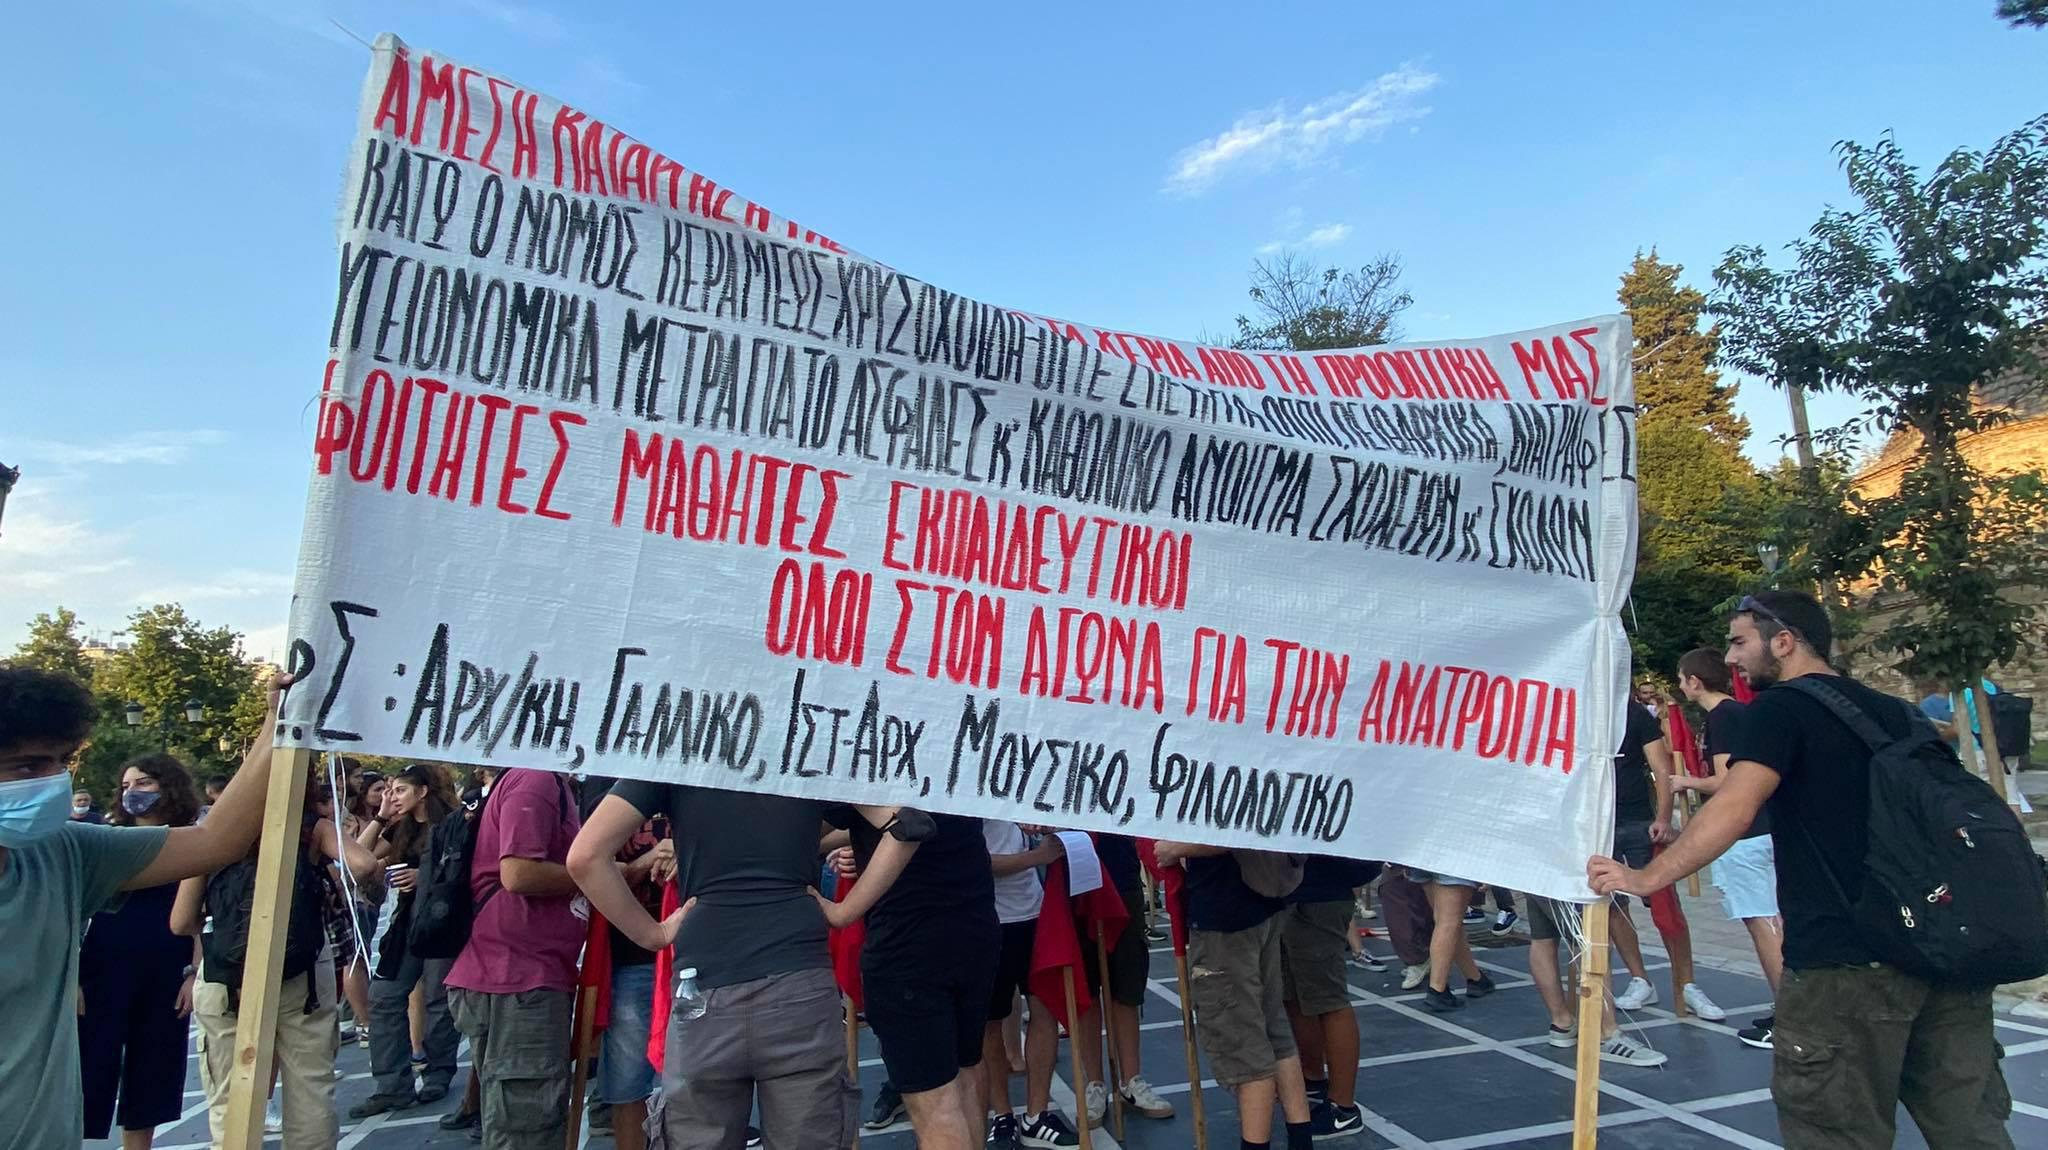 ΑΜΕΣΗ ΚΑΤΑΡΓΗΣΗ ΤΗΣ ΤΑ ΧΕΡΙΑ ΑΠΟ ΤΗ ΠΡΟΟΠΤΙΚΗ ΜΑΣ
ΚΑΤΩ Ο ΝΟΜΟΣ ΚΕΡΑΜΕΩΣ-ΧΡΥΣΟΧΟΙΔΗ-ΟΥΤΕ ΠΕΙΘΑΡΧΙΚΑ, ΔΙΑΓΡΑΦΕΣ
ΥΓΕΙΟΝΟΜΙΚΑ ΜΕΤΡΑ ΓΙΑ ΤΟ ΑΣΦΑΛΕΣ Κ' ΚΑΘΟΛΙΚΟ ΑΝΟΙΓΜΑ ΣΧΟΛΕΙΩΝ Κ' ΣΧΟΛΩΝ
ΦΟΙΤΗΤΕΣ ΜΑΘΗΤΕΣ ΕΚΠΑΙΔΕΥΤΙΚΟΙ
ΟΛΟΙ ΣΤΟΝ ΑΓΩΝΑ ΓΙΑ ΤΗΝ ΑΝΑΤΡΟΠΗ
Σ: ΑΡΧ/ΚΗ, ΓΑΛΛΙΚΟ, ΙΣΤ-ΑΡΧ, ΜΟΥΣΙΚΟ, ΦΙΛΟΛΟΓΙΚΟ